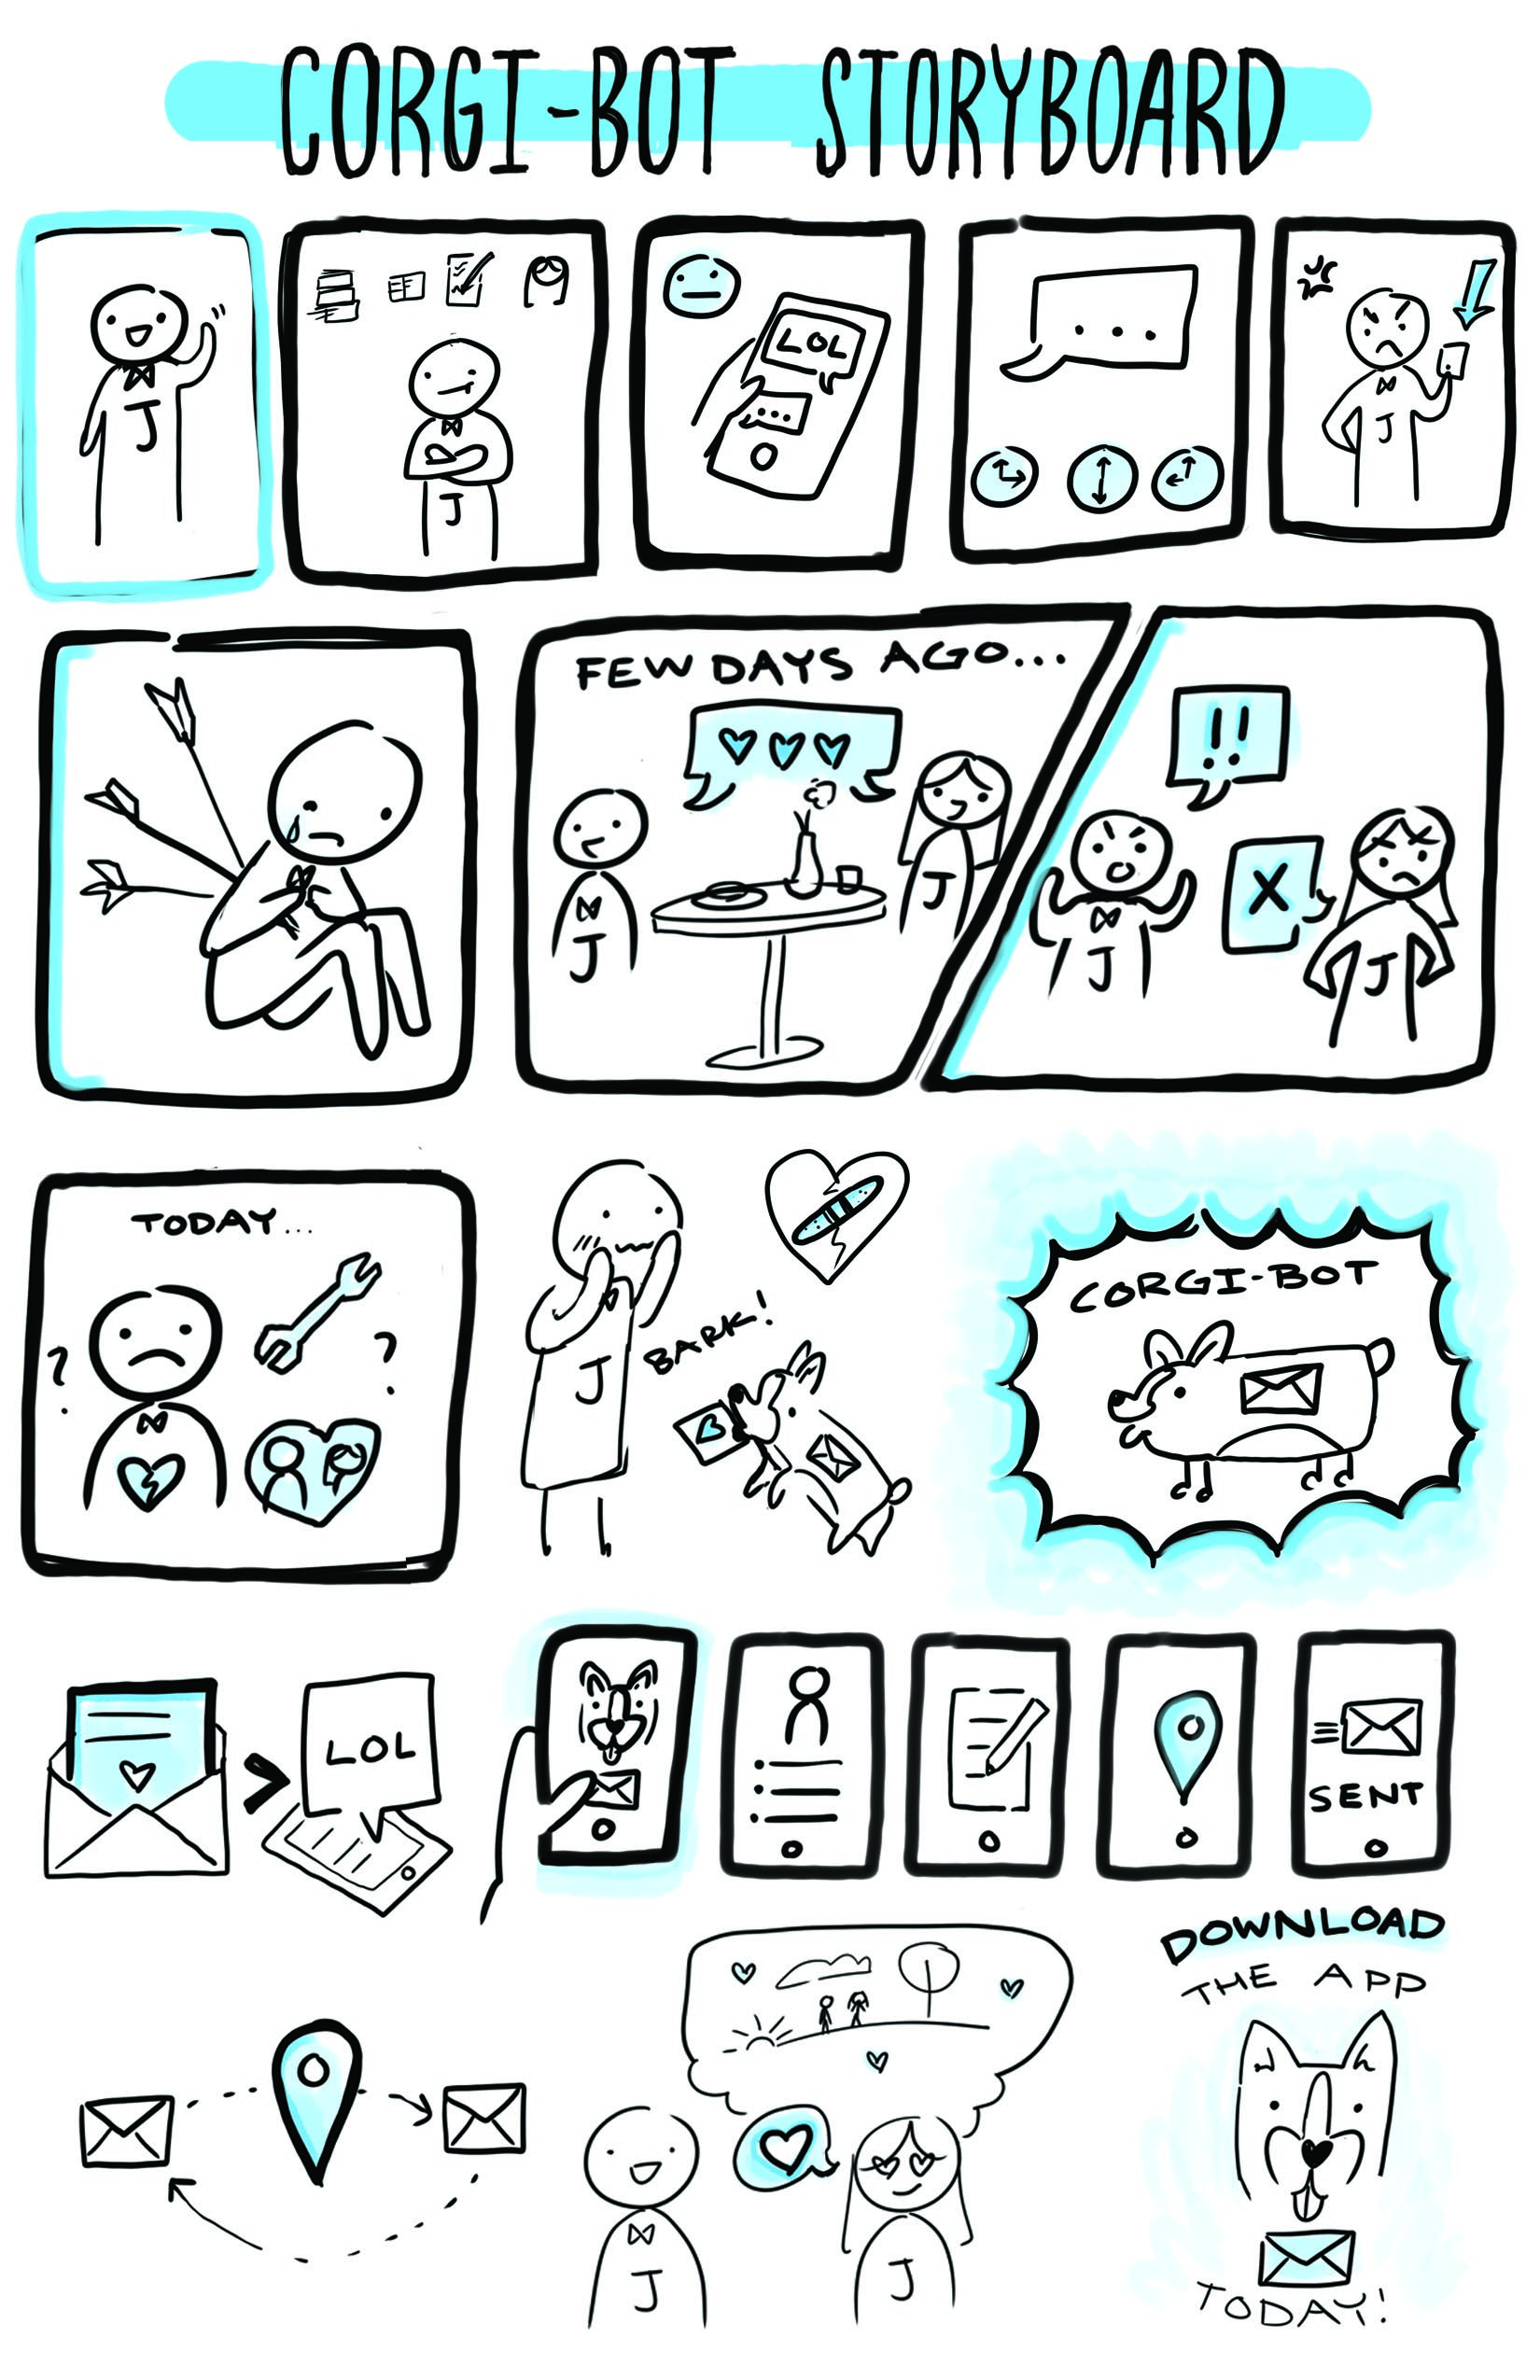 CORGI-BOT STORYBOARD
J
J
LOL
...
...
J
FEW DAYS AGO...
J
J
!!
X
J
J
TODAY...
?
?
J
BARK!
CORGI-BOT
LOL
>
SENT
DOWNLOAD
THE APP
J
J
TODAY!